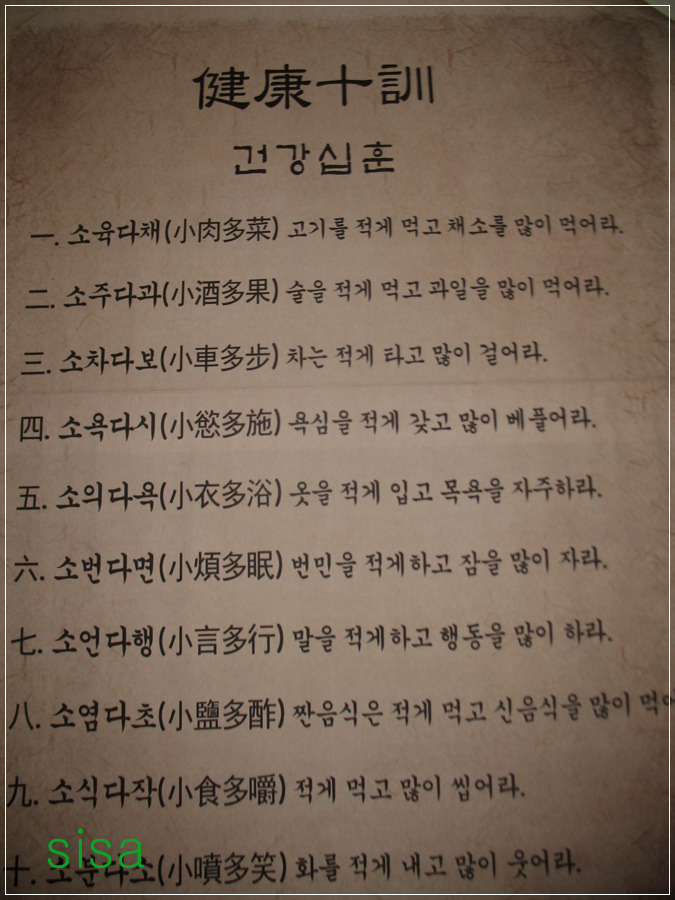 健康十訓
건강십훈
一. 소육다채(小肉多菜) 고기를 적게 먹고 채소를 많이 먹어라.
二. 소주다과(小酒多果) 술을 적게 먹고 과일을 많이 먹어라.
三. 소차다보(小車多步) 차는 적게 타고 많이 걸어라.
四. 소욕다시(小慾多施) 욕심을 적게 갖고 많이 베풀어라.
五. 소의다욕(小衣多浴) 옷을 적게 입고 목욕을 자주하라.
六. 소번다면(小煩多眠) 번민을 적게하고 잠을 많이 자라.
七. 소언다행(小言多行) 말을 적게하고 행동을 많이 하라.
八. 소염다초(小鹽多酢) 짠음식은 적게 먹고 신음식을 많이 먹어
九. 소식다작(小食多嚼) 적게 먹고 많이 씹어라.
十. 소분다소(小噴多笑) 화를 적게 내고 많이 웃어라.
sisa